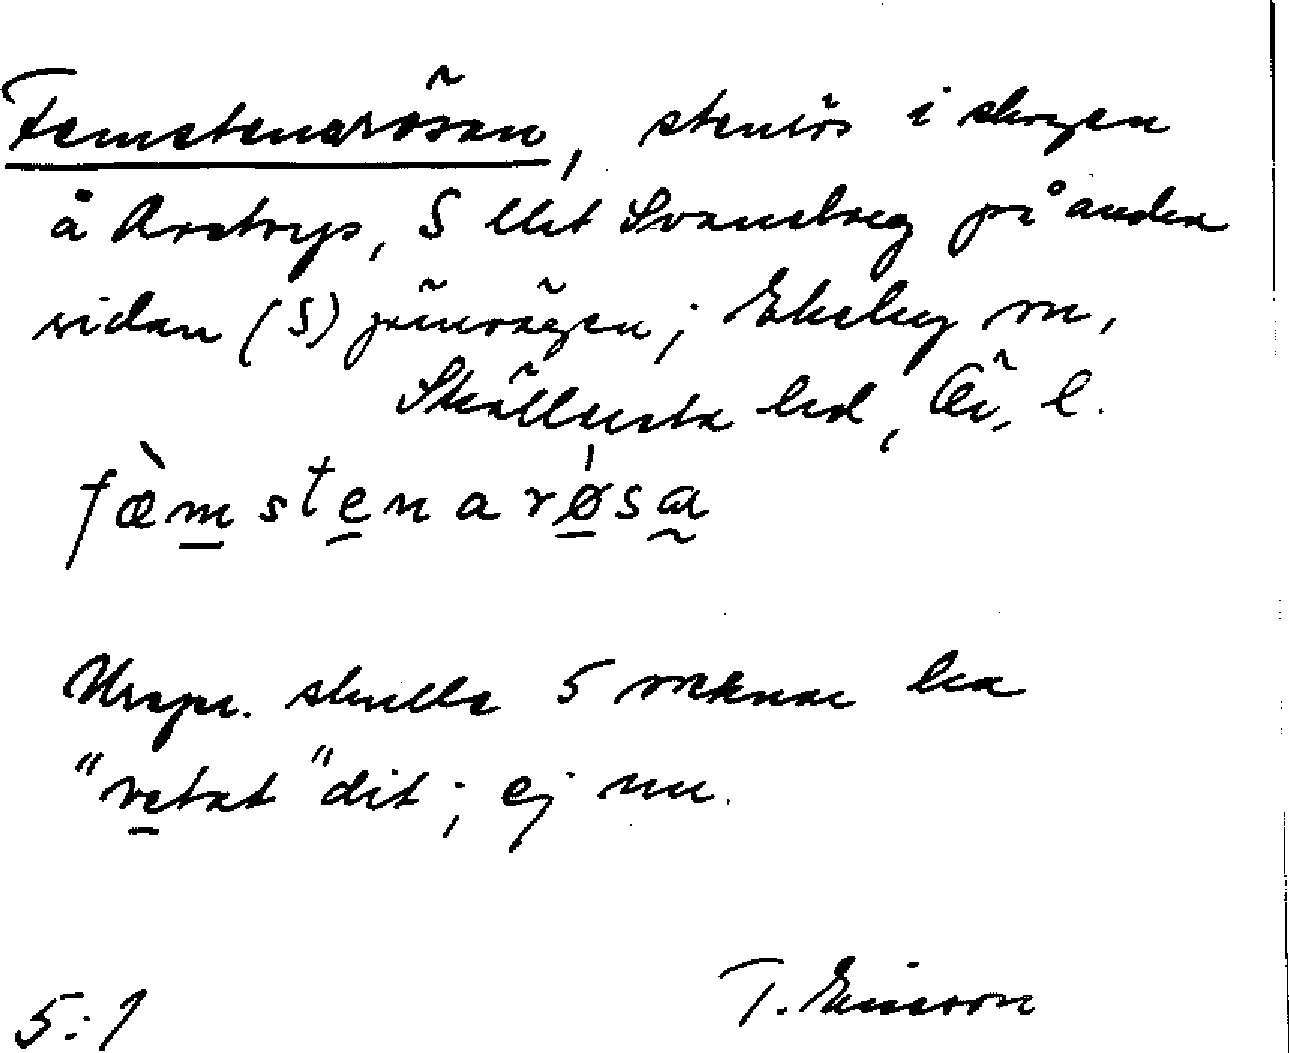 Femstenarösen, stenrös i skogen
å Avstorp, S lht Svansberg på andra
sidan (S) järnvägen; Ekeby sn,
Sköllersta hd, Ör. l.
fæ̀mstenarø̀sa
Urspr. skulle 5 stenar ha
"vetat" dit; ej nu.
T. Ericsson
5:1